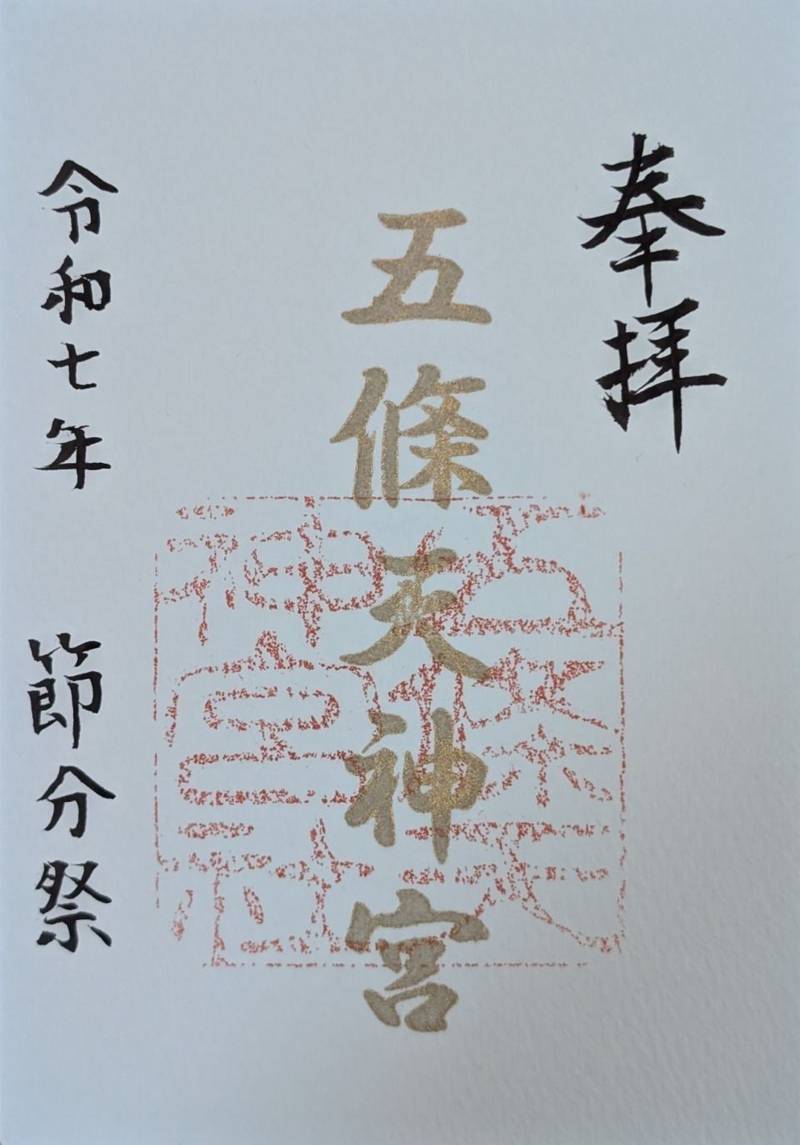 奉拝
五條天神宮
令和七年 節分祭